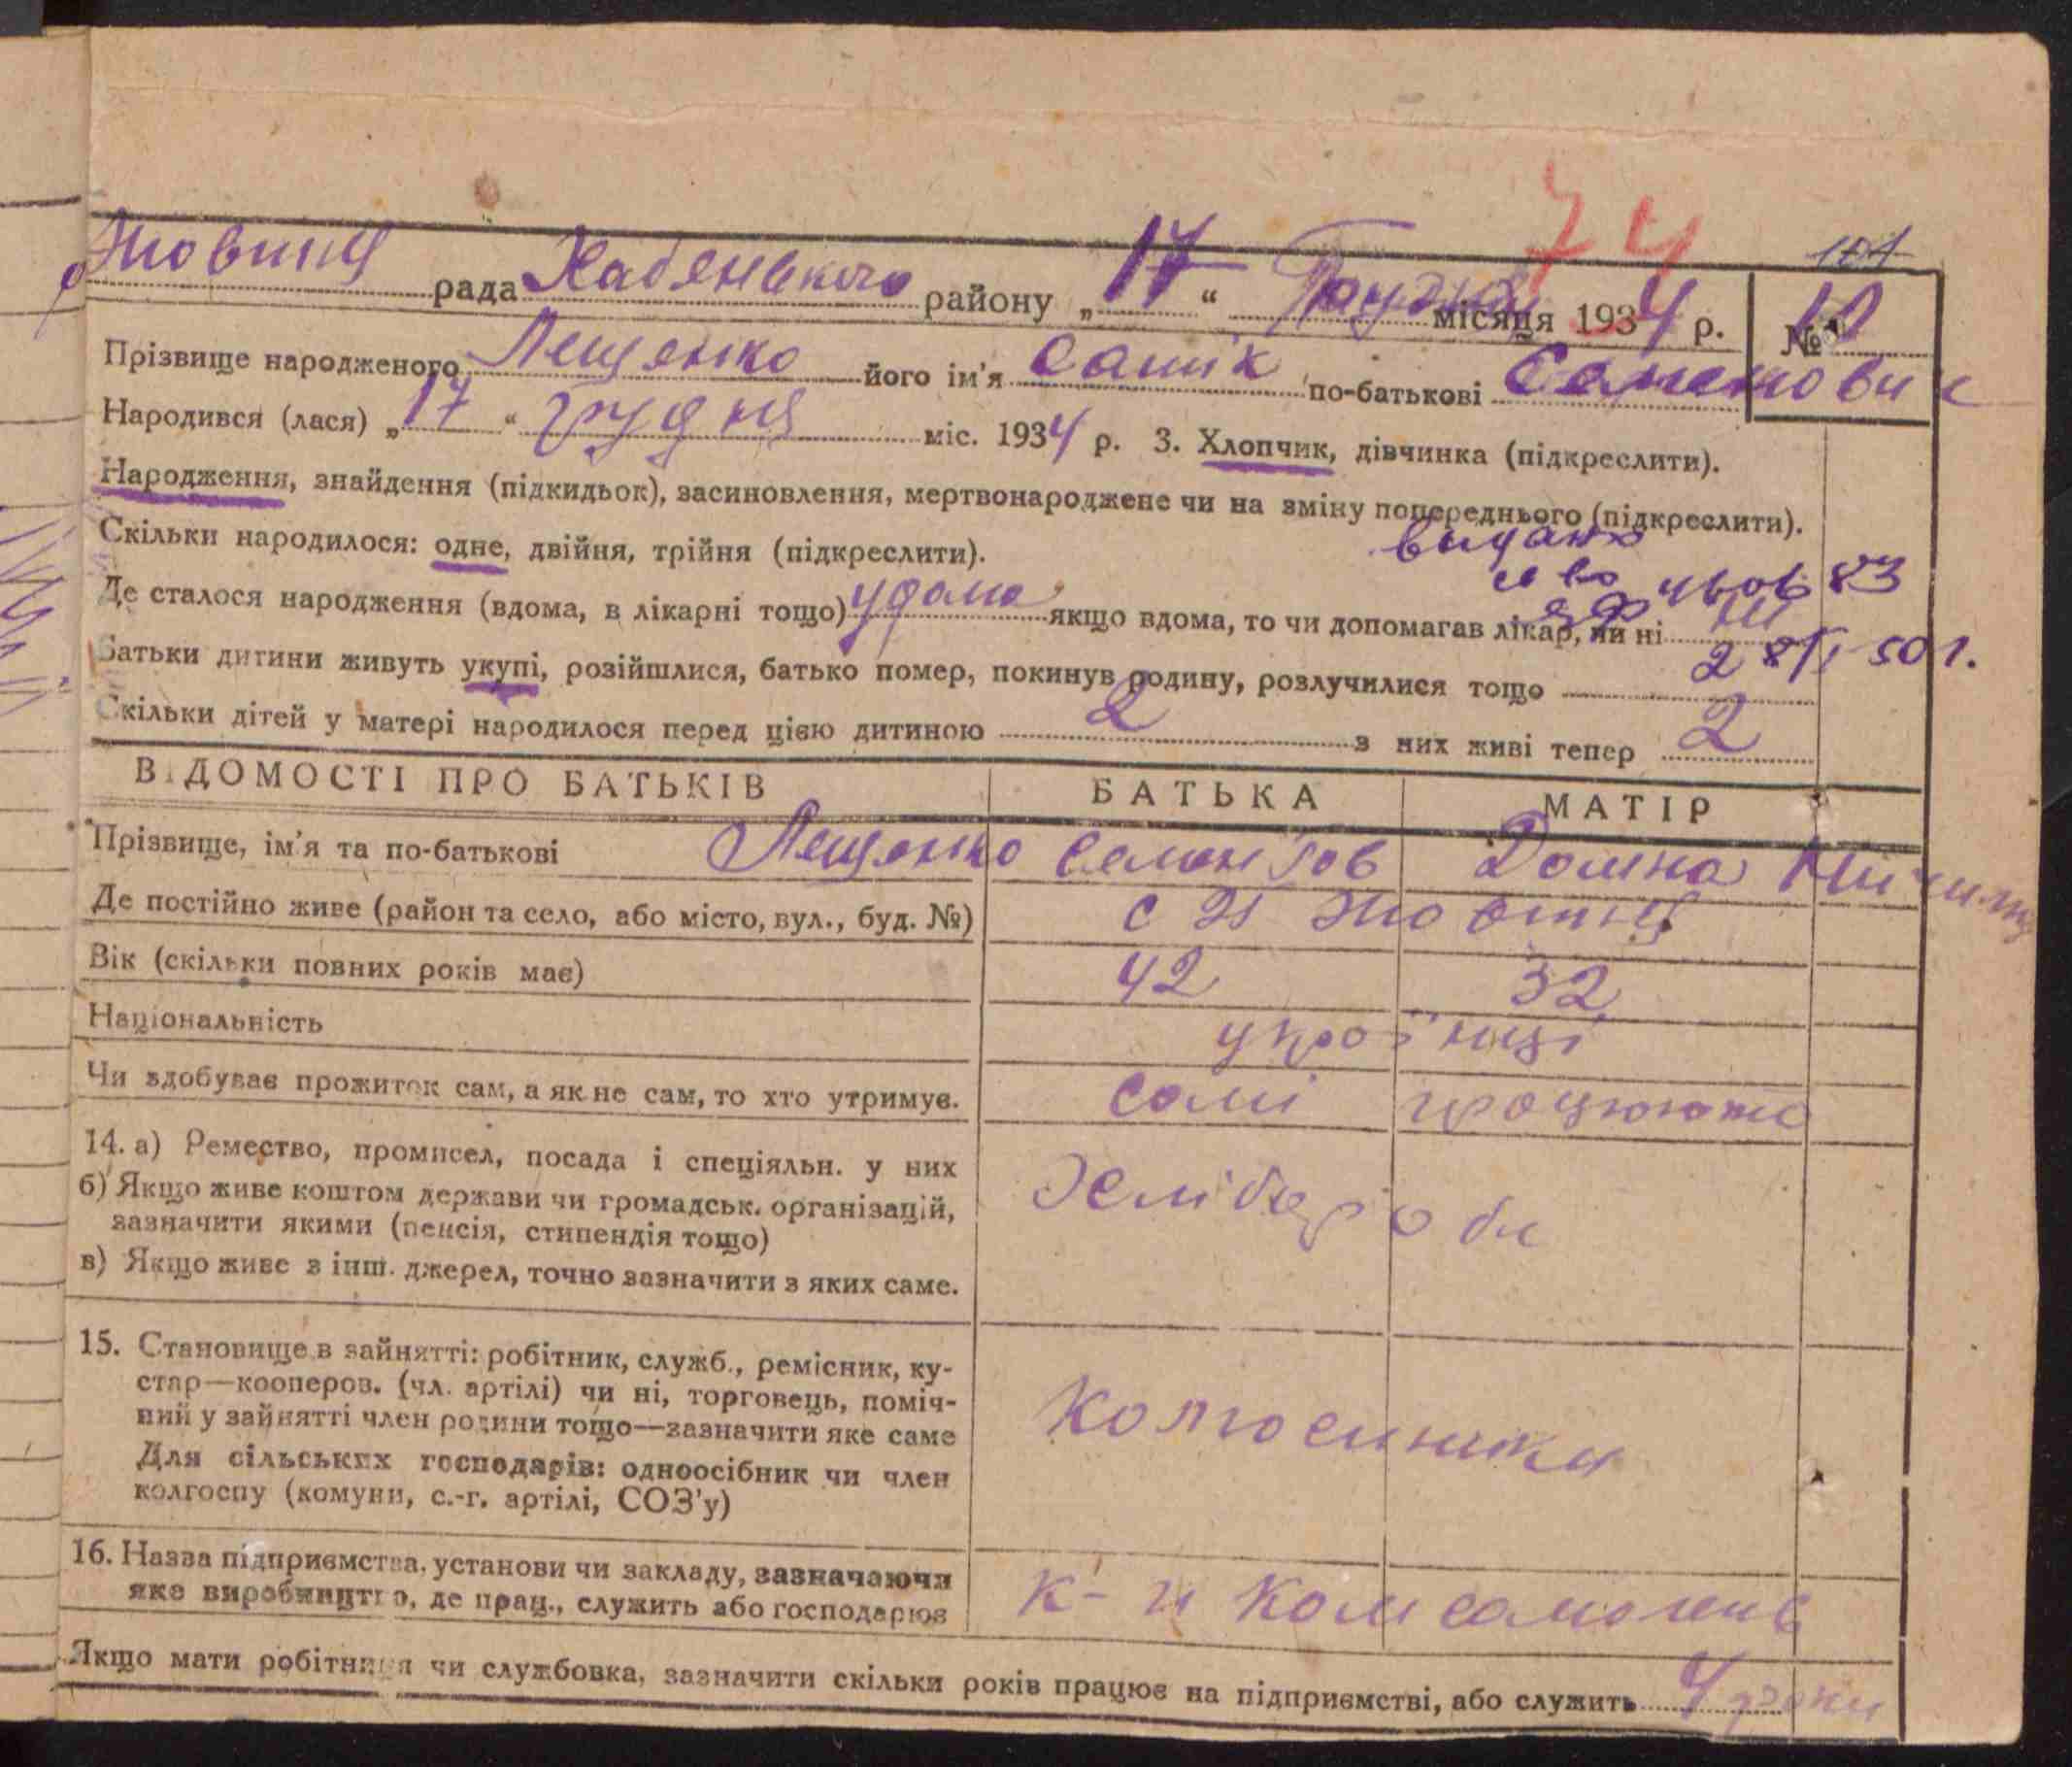 74
рада Хабенького району „17“ Грудня місяця 1934 р. № 10
Прізвище народженого Лещенко його ім'я по-батькові Семенович
Народився (лася) „17“ грудня міс. 1934 р. 3. Хлопчик, дівчинка (підкреслити).
Народження, знайдення (підкидьок), засиновлення, мертвонароджене чи на зміну попереднього (підкреслити).
Скільки народилося: одне, двійня, трійня (підкреслити).
83
Де сталося народження (вдома, в лікарні тощо) удома якщо вдома, то чи допомагав лікар, чи ні ні
50 г.
Батьки дитини живуть укупі, розійшлися, батько помер, покинув родину, розлучилися тощо
Скільки дітей у матері народилося перед цією дитиною 2 з них живі тепер 2
ВІДОМОСТІ ПРО БАТЬКІВ БАТЬКА МАТІР
Прізвище, ім'я та по-батькові Лещенко Семен Домна
Де постійно живе (район та село, або місто, вул., буд. №)
Вік (скільки повних років має) 42 32
Національність украінці
Чи здобуває прожиток сам, а як не сам, то хто утримує. самі працюють
14. а) Ремество, промисел, посада і спеціяльн. у них
б) Якщо живе коштом держави чи громадськ. організацій,
зазначити якими (пенсія, стипендія тощо)
в) Якщо живе з інш. джерел, точно зазначити з яких саме.
Хлібороби
15. Становище в зайнятті: робітник, служб., ремісник, ку-
стар—кооперов. (чл. артілі) чи ні, торговець, поміч-
ний у зайнятті член родини тощо—зазначити яке саме
Для сільських господарів: одноосібник чи член
колгоспу (комуни, с.-г. артілі, СОЗ'у)
16. Назва підприємства, установи чи закладу, зазначаючи
яке виробництво, де прац., служить або господарює
Якщо мати робітниця чи службовка, зазначити скільки років працює на підприємстві, або служить 4 роки